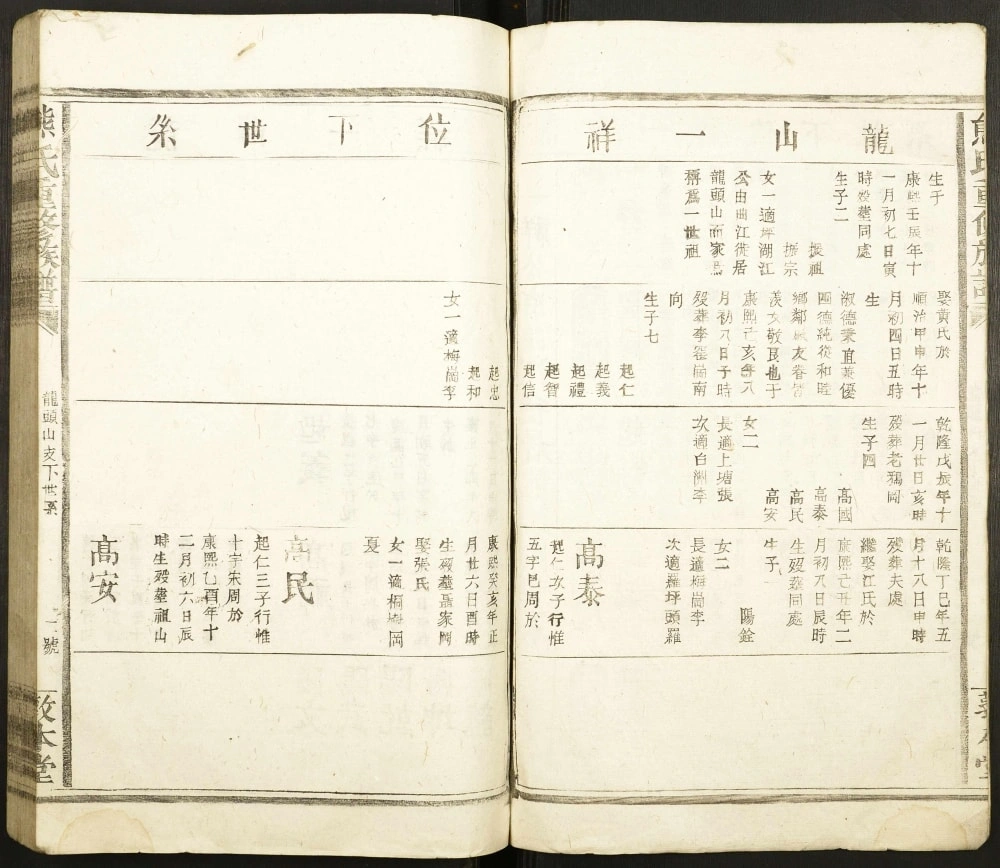 龍山一祥
生于
康熙壬辰年十
一月初七日寅
時歿塟同處
生子二
援祖
振宗
女一適坪湖江
公由曲江徙居
龍頭山而家焉
稱爲一世祖
娶黃氏於
順治甲申年十
月初四日五時
生
淑德秉直兼優
四德純從和睦
鄉鄰
敬艮也于
康熙
月初八日子時
歿塟李
崗南
向
生子七
起仁
起義
起禮
起智
起信
乾隆戊辰年十
一月廿日亥時
歿葬老鴉岡
生子四
高國
高泰
高民
高安
女二
長適上塘張
次適白洲李
乾隆丁巳年五
月十八日申時
殘葬夫處
繼娶江氏於
康熙己丑年二
月初八日辰時
生歿塟同處
生子
陽銓
女二
長適梅崗李
次適羅坪頭羅
高泰
起仁次子行惟
五字邑周於
位下世系
起忠
起和
女一適梅崗李
康熙癸亥年正
月廿六日酉時
生歿塟聶家岡
娶張氏
女一適桐岡
夏
高民
起仁三子行惟
十字朱周於
康熙乙酉年十
二月初六日辰
時生歿塟祖山
高安
熊氏重修族譜
龍頭山支下世系
號
敦本堂